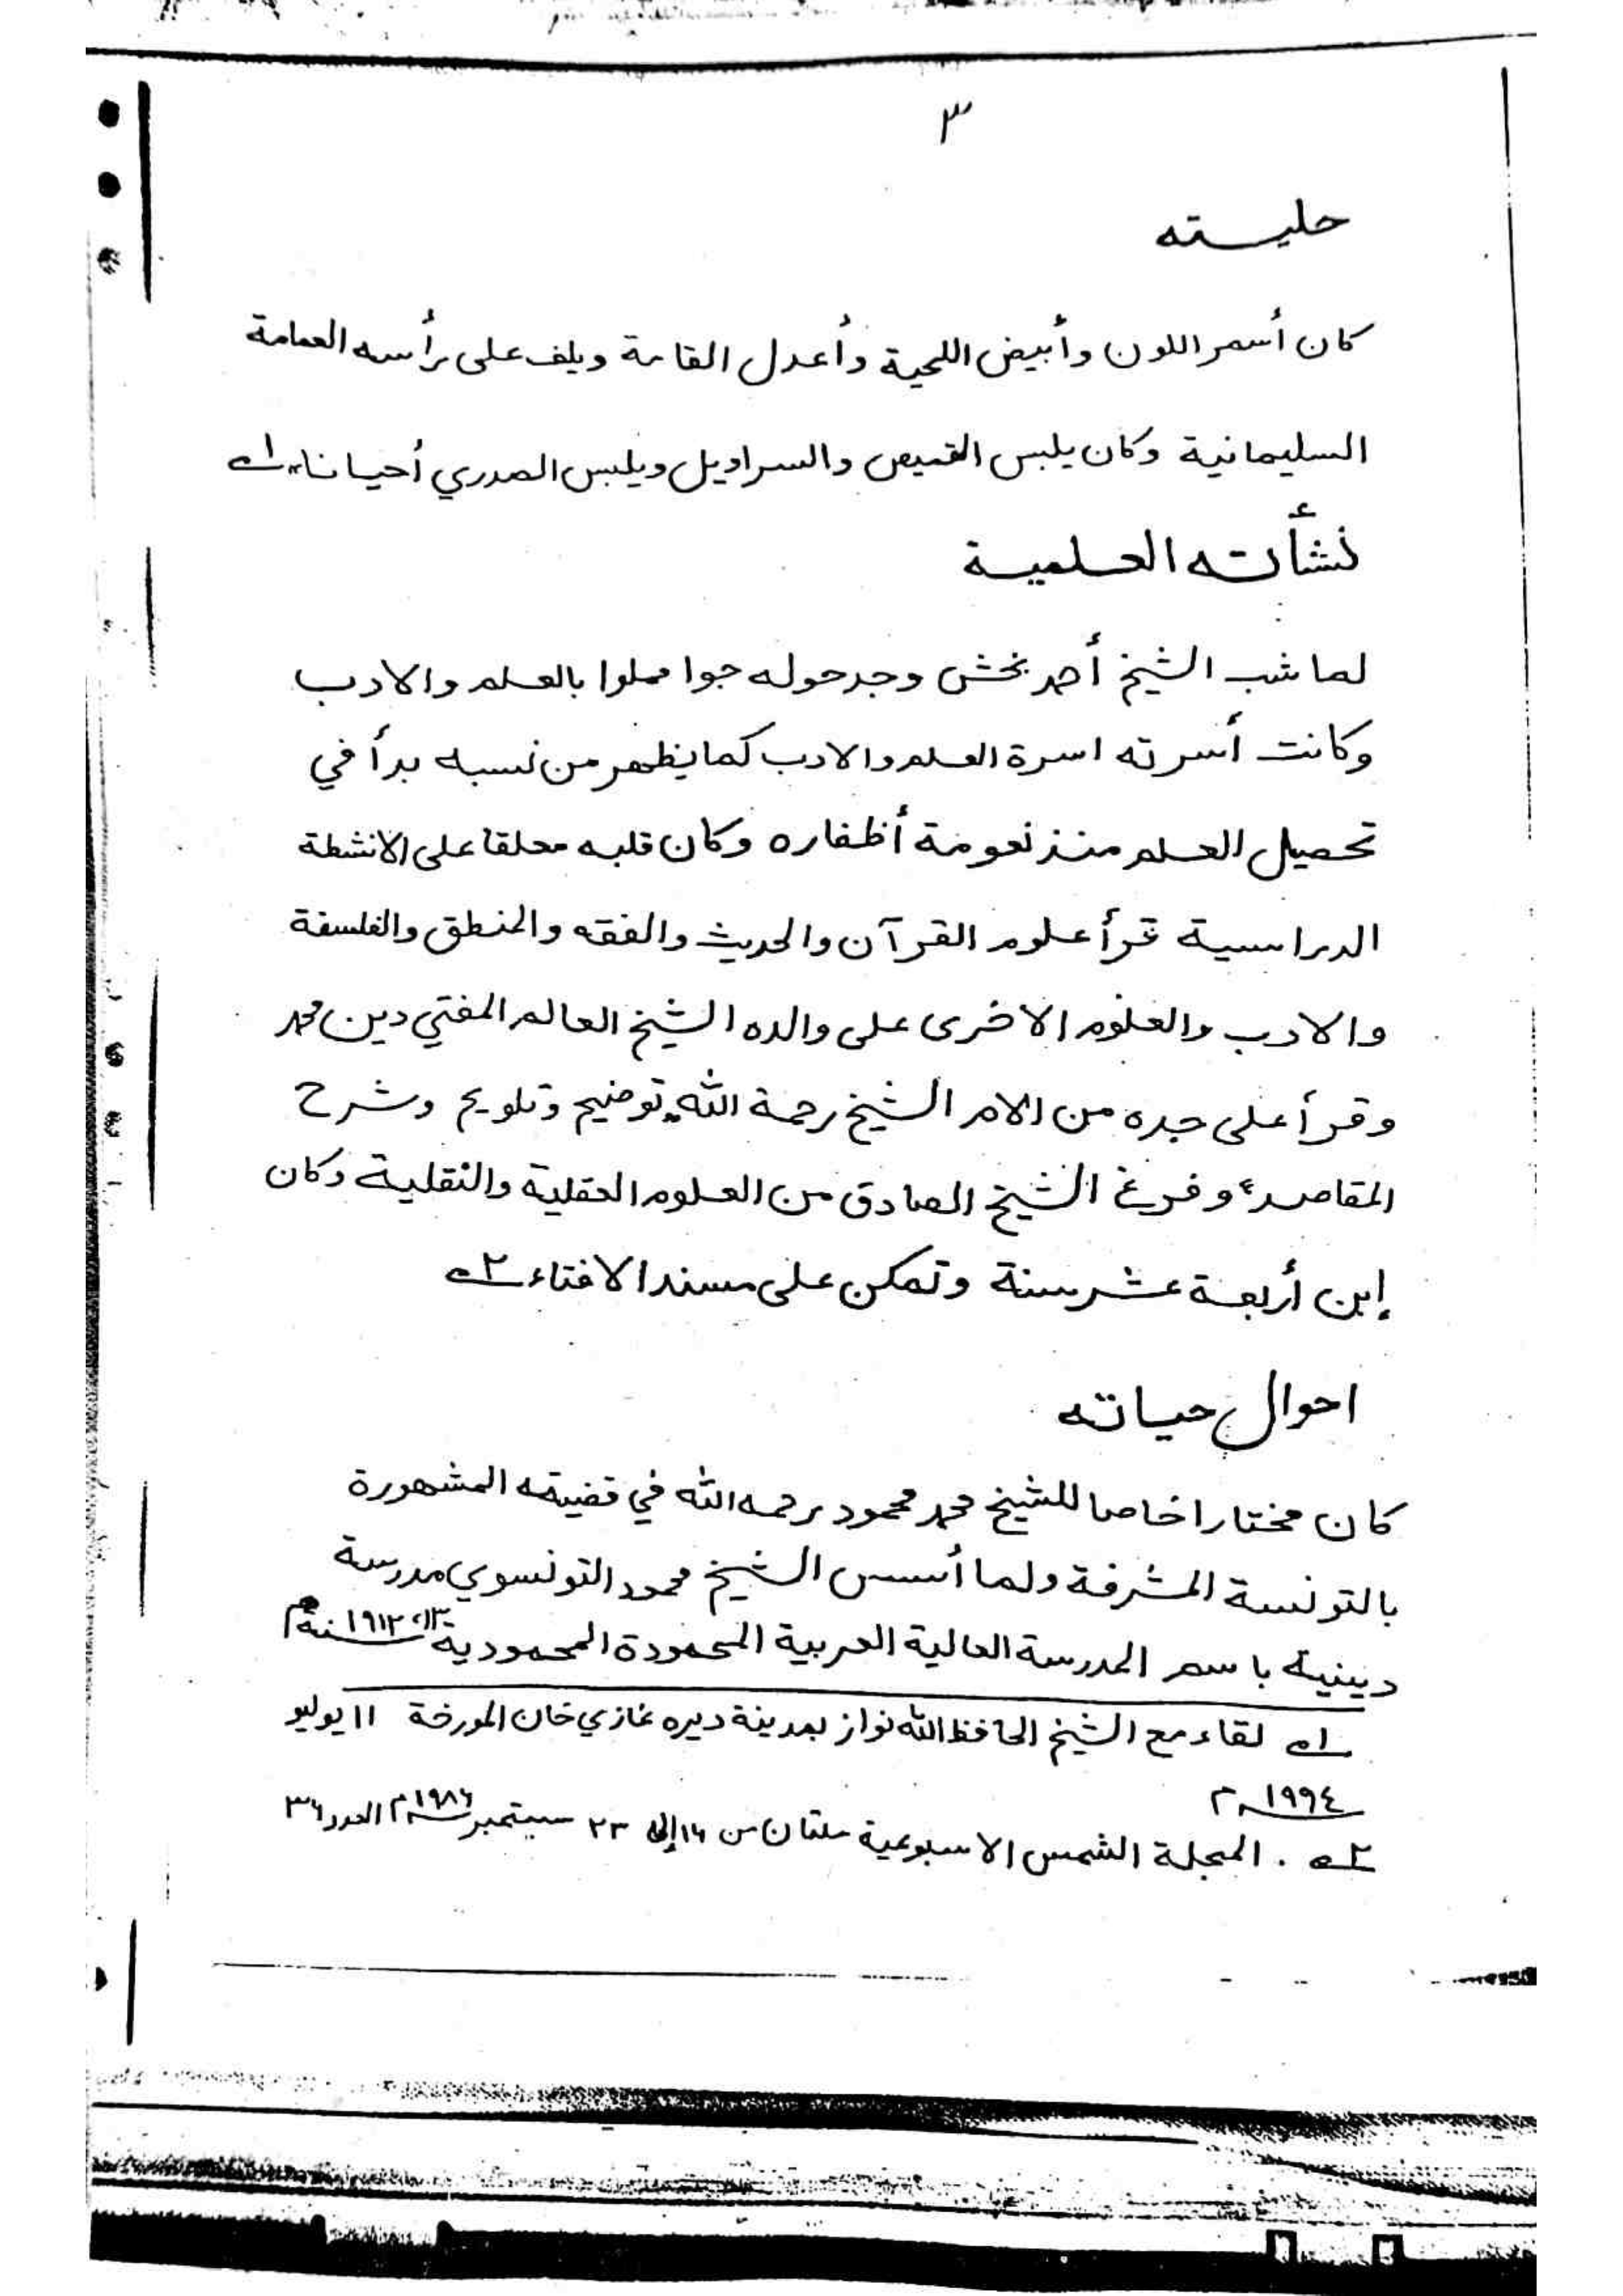 ٣
حليته
كان أسمر اللون وأبيض اللحية وأعدل القامة ويلف على رأسه العمامة
السليمانية وكان يلبس القميص والسراويل ويلبس الصدري أحيانا ١ه
نشأته العلمية
لما شب الشيخ أحمد بخش وجد حوله جوا مملوا بالعلم والادب
وكانت أسرته اسرة العلم والادب كما يظهر من نسبه بدأ في
تحصيل العلم منذ نعومة أظفاره وكان قلبه معلقا على الانشطة
الدراسية قرأ علوم القرآن والحديث والفقه والمنطق والفلسفة
والادب والعلوم الاخرى على والده الشيخ العالم المفتي دين محمد
وقرأ على جده من الام الشيخ رحمة الله "توضيح وتلويح وشرح
المقاصد" وفرغ الشيخ الصادق من العلوم العقلية والنقلية وكان
إبن أربعة عشر سنة وتمكن على مسند الافتاء ٢ه
احوال حياته
كان مختارا خاصا للشيخ محمد محمود رحمه الله في قضيته المشهورة
بالتونسة المشرفة ولما أسس الشيخ محمود التونسوي مدرسة
دينية باسم المدرسة العالية العربية المحمودة المحمودية سنة
١ه لقاء مع الشيخ الحافظ الله نواز بمدينة ديره غازي خان المورخة ١١ يوليو
١٩٩٤م
٢ه . المجلة الشمس الاسبوعية ملتان من ١٦ إلى ٢٣ سبتمبر ١٩٨٦م العدد ٣٦